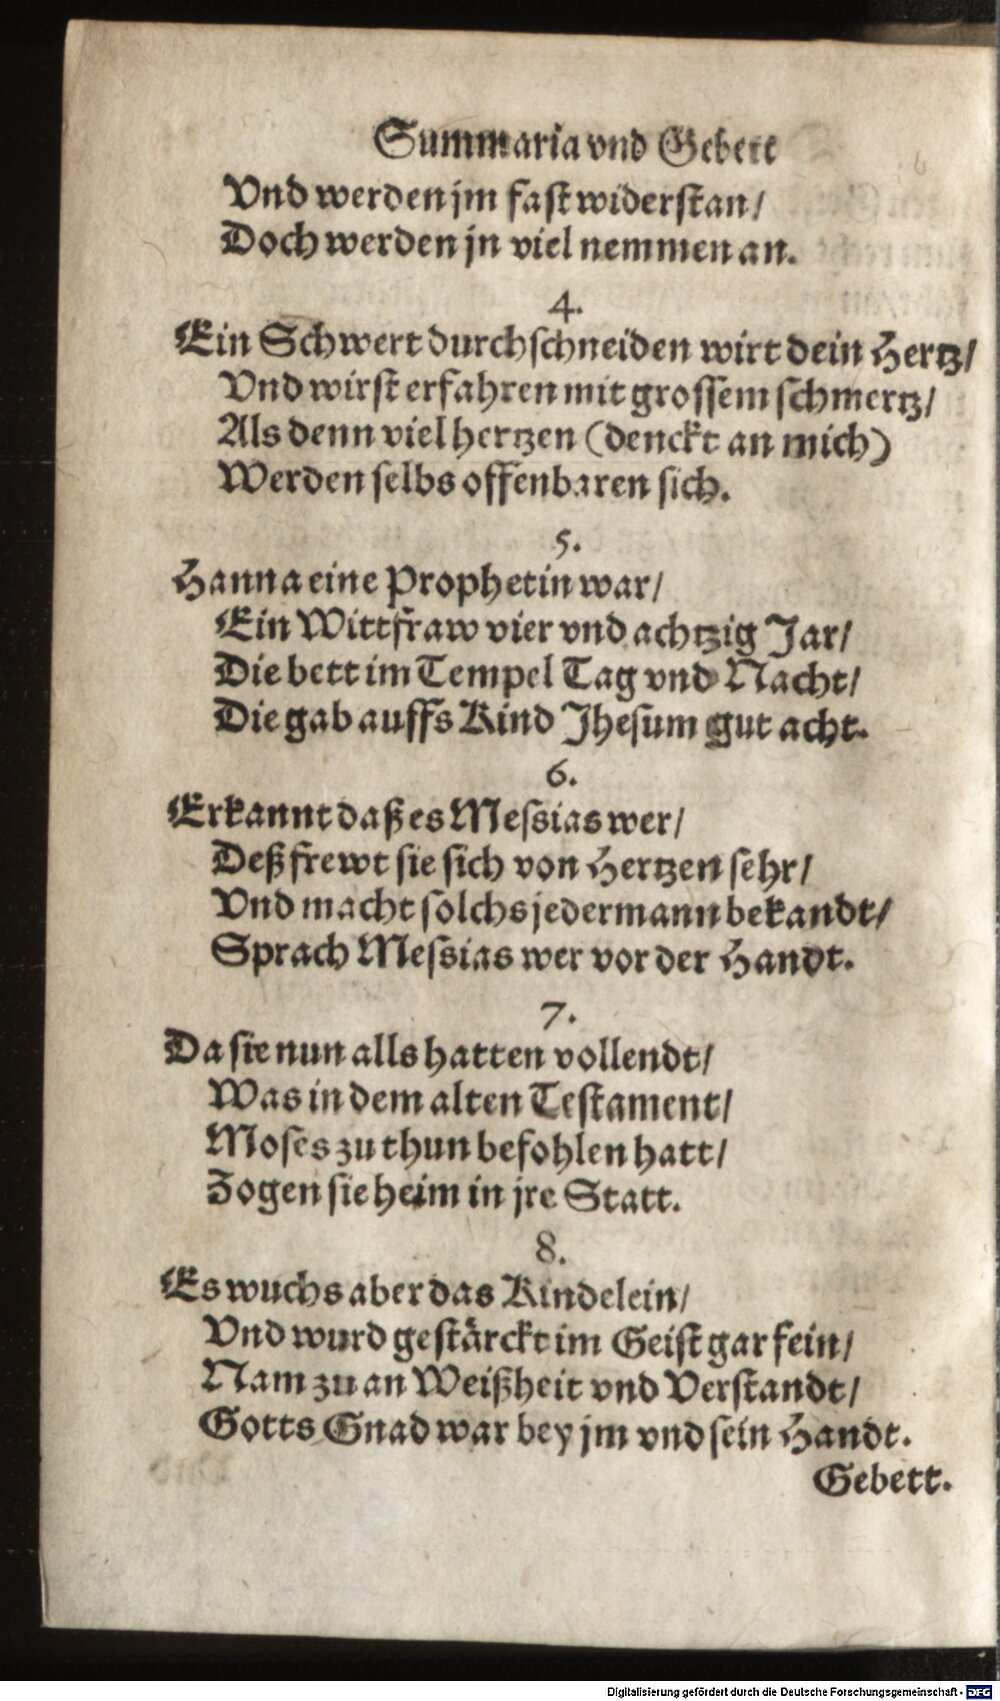 Summaria vnd Gebett
Vnd werden jm fast widerstan/
Doch werden jn viel nemmen an.
4.
Ein Schwert durchschneiden wirt dein Hertz/
Vnd wirst erfahren mit grossem schmertz/
Als denn viel hertzen (denckt an mich)
Werden selbs offenbaren sich.
5.
Hanna eine Prophetin war/
Ein Wittfraw vier vnd achtzig Jar/
Die bett im Tempel Tag vnd Nacht/
Die gab auffs Kind Jhesum gut acht.
6.
Erkannt daß es Messias wer/
Deß frewt sie sich von Hertzen sehr/
Vnd macht solchs jedermann bekandt/
Sprach Messias wer vor der Handt.
7.
Da sie nun alls hatten vollendt/
Was in dem alten Testament/
Moses zu thun befohlen hatt/
Zogen sie heim in jre Statt.
8.
Es wuchs aber das Kindelein/
Vnd wurd gestärckt im Geist gar fein/
Nam zu an Weißheit vnd Verstandt/
Gotts Gnad war bey jm vnd sein Handt.
Gebett.
Digitalisierung gefördert durch die Deutsche Forschungsgemeinschaft - DFG